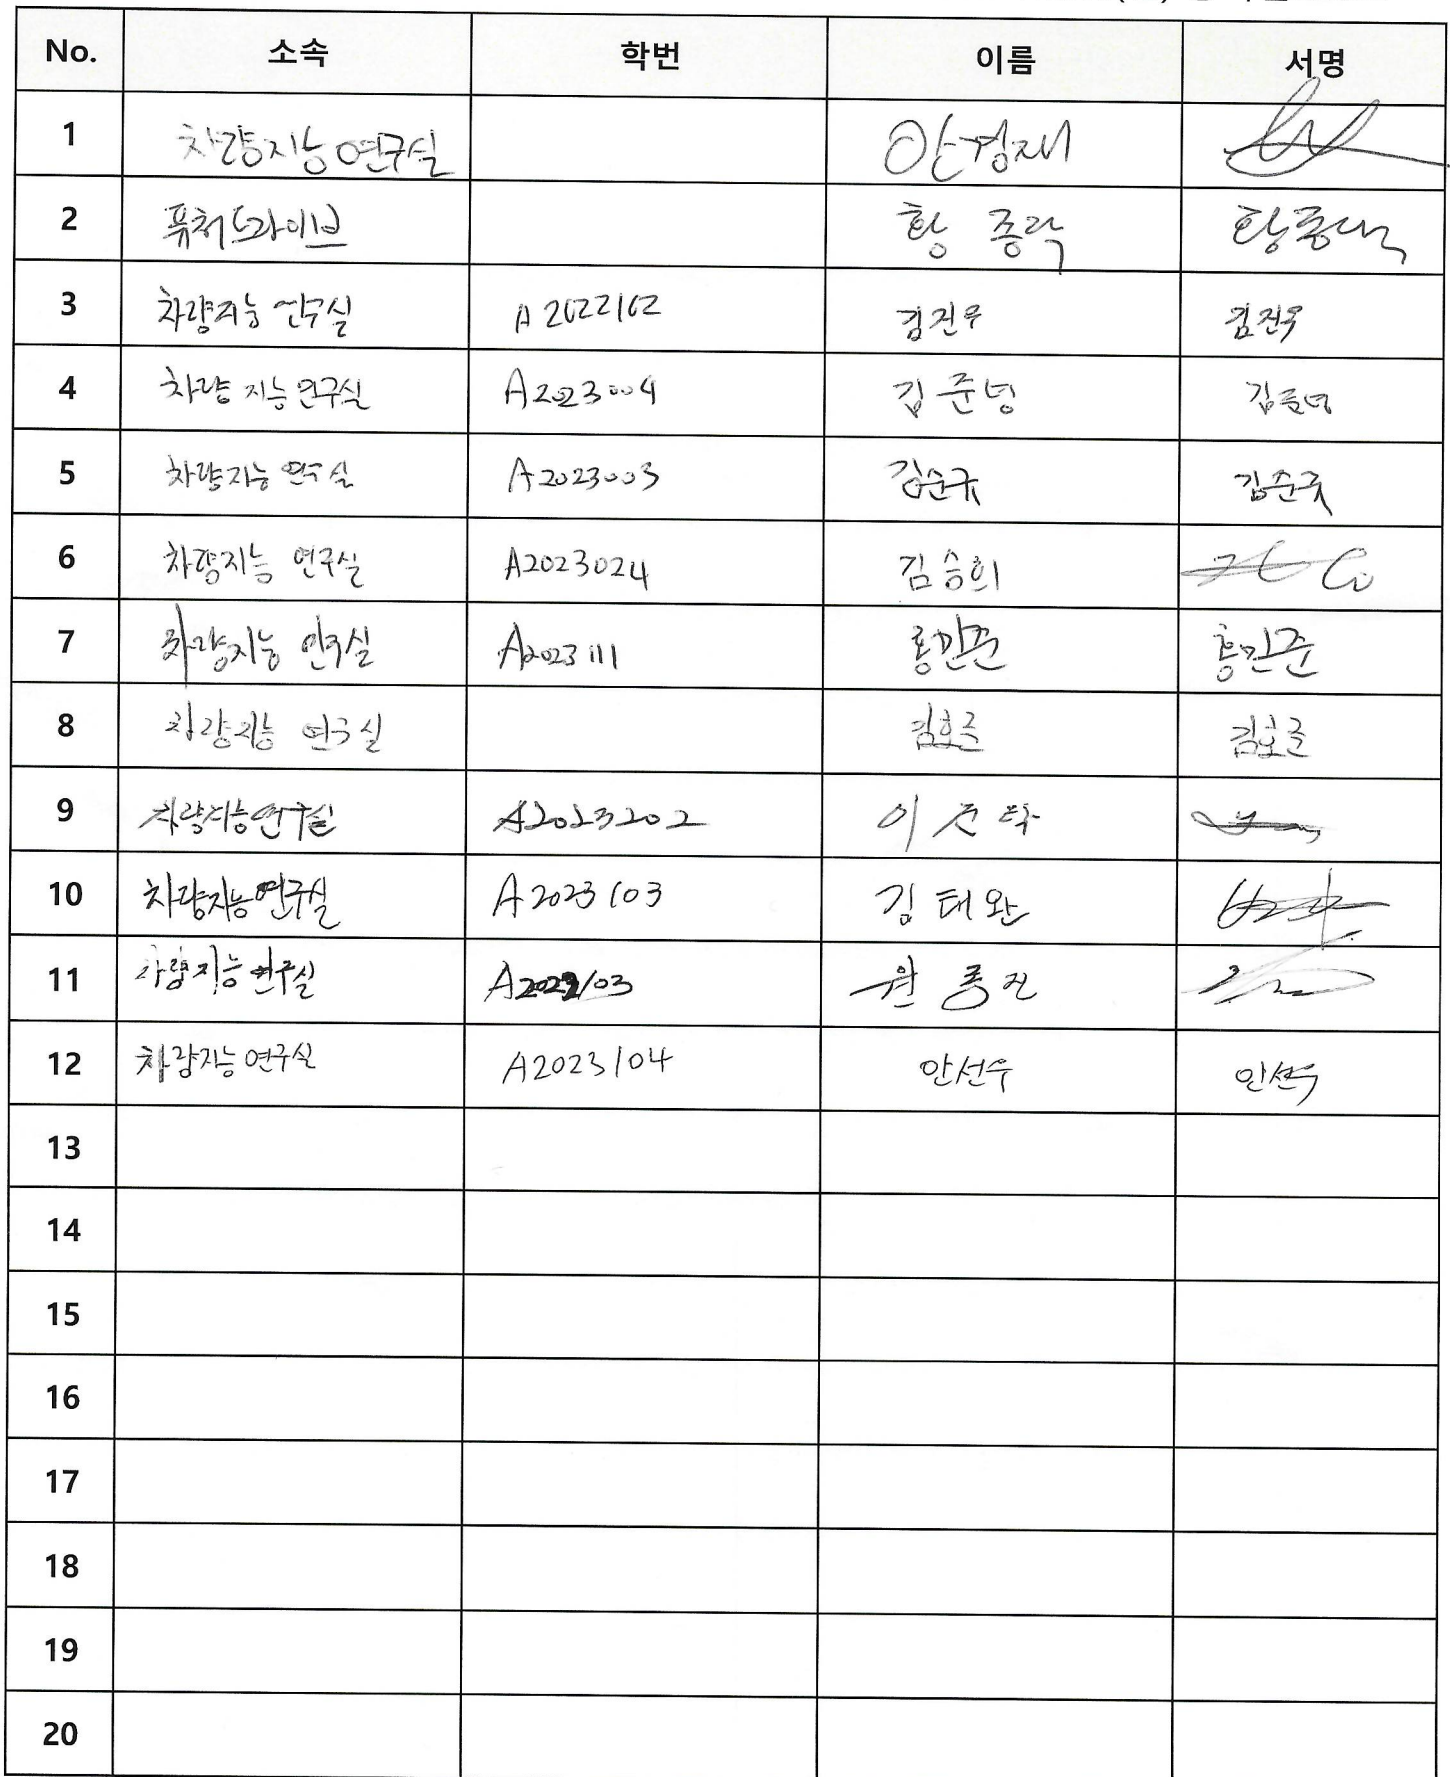 No. 소속 학번 이름 서명
1 차량지능연구실 안경재
2 퓨처드라이브 황종락 황종락
3 차량지능 연구실 A2022102 김진우 김진우
4 차량지능연구실 A2023004 김준녕 김준녕
5 차량지능 연구실 A2023003 김순규 김순규
6 차량지능 연구실 A2023024 김승희
7 차량지능 연구실 A2023111 홍민준 홍민준
8 차량지능 연구실 김효준 김효준
9 차량지능연구실 A2023202 이준탁
10 차량지능연구실 A2023103 김태완
11 차량지능연구실 A2022103 원종진
12 차량지능연구실 A2023104 안선우 안선우
13
14
15
16
17
18
19
20